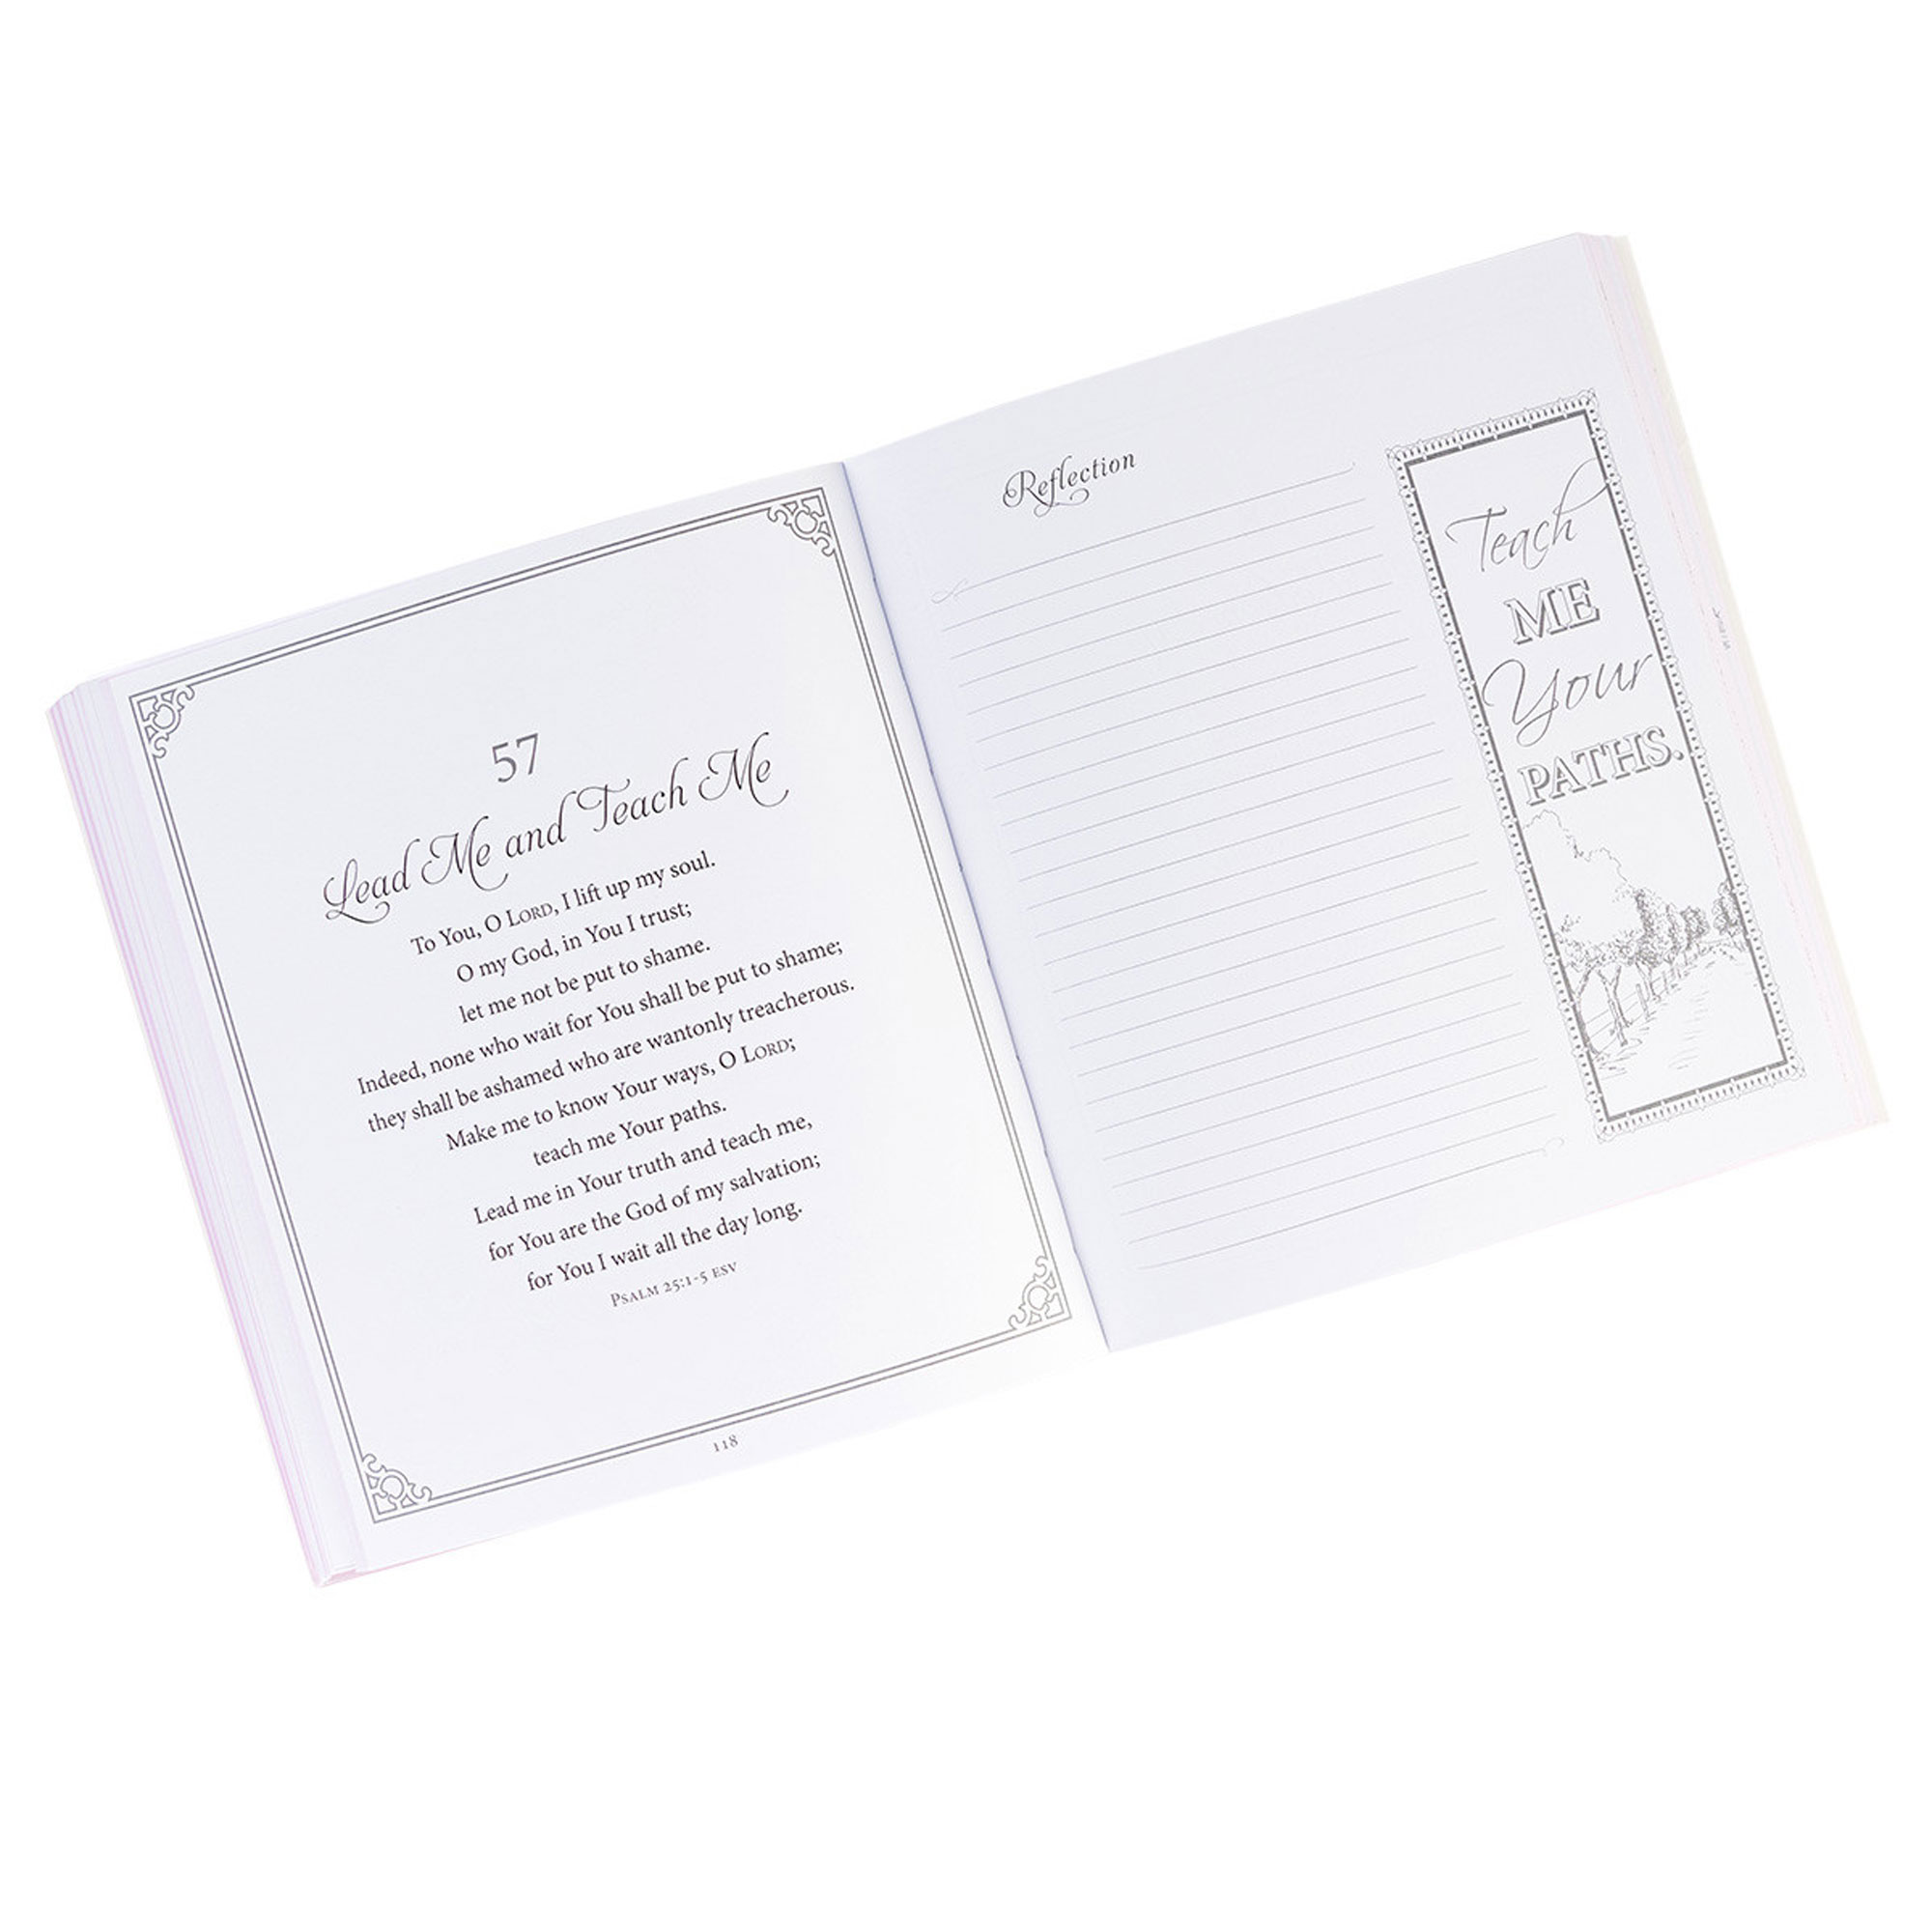 57
Lead Me and Teach Me
To You, O LORD, I lift up my soul.
O my God, in You I trust;
let me not be put to shame.
Indeed, none who wait for You shall be put to shame;
they shall be ashamed who are wantonly treacherous.
Make me to know Your ways, O LORD;
teach me Your paths.
Lead me in Your truth and teach me,
for You are the God of my salvation;
for You I wait all the day long.
PSALM 25:1-5 ESV
118
Reflection
Teach
ME
Your
PATHS.